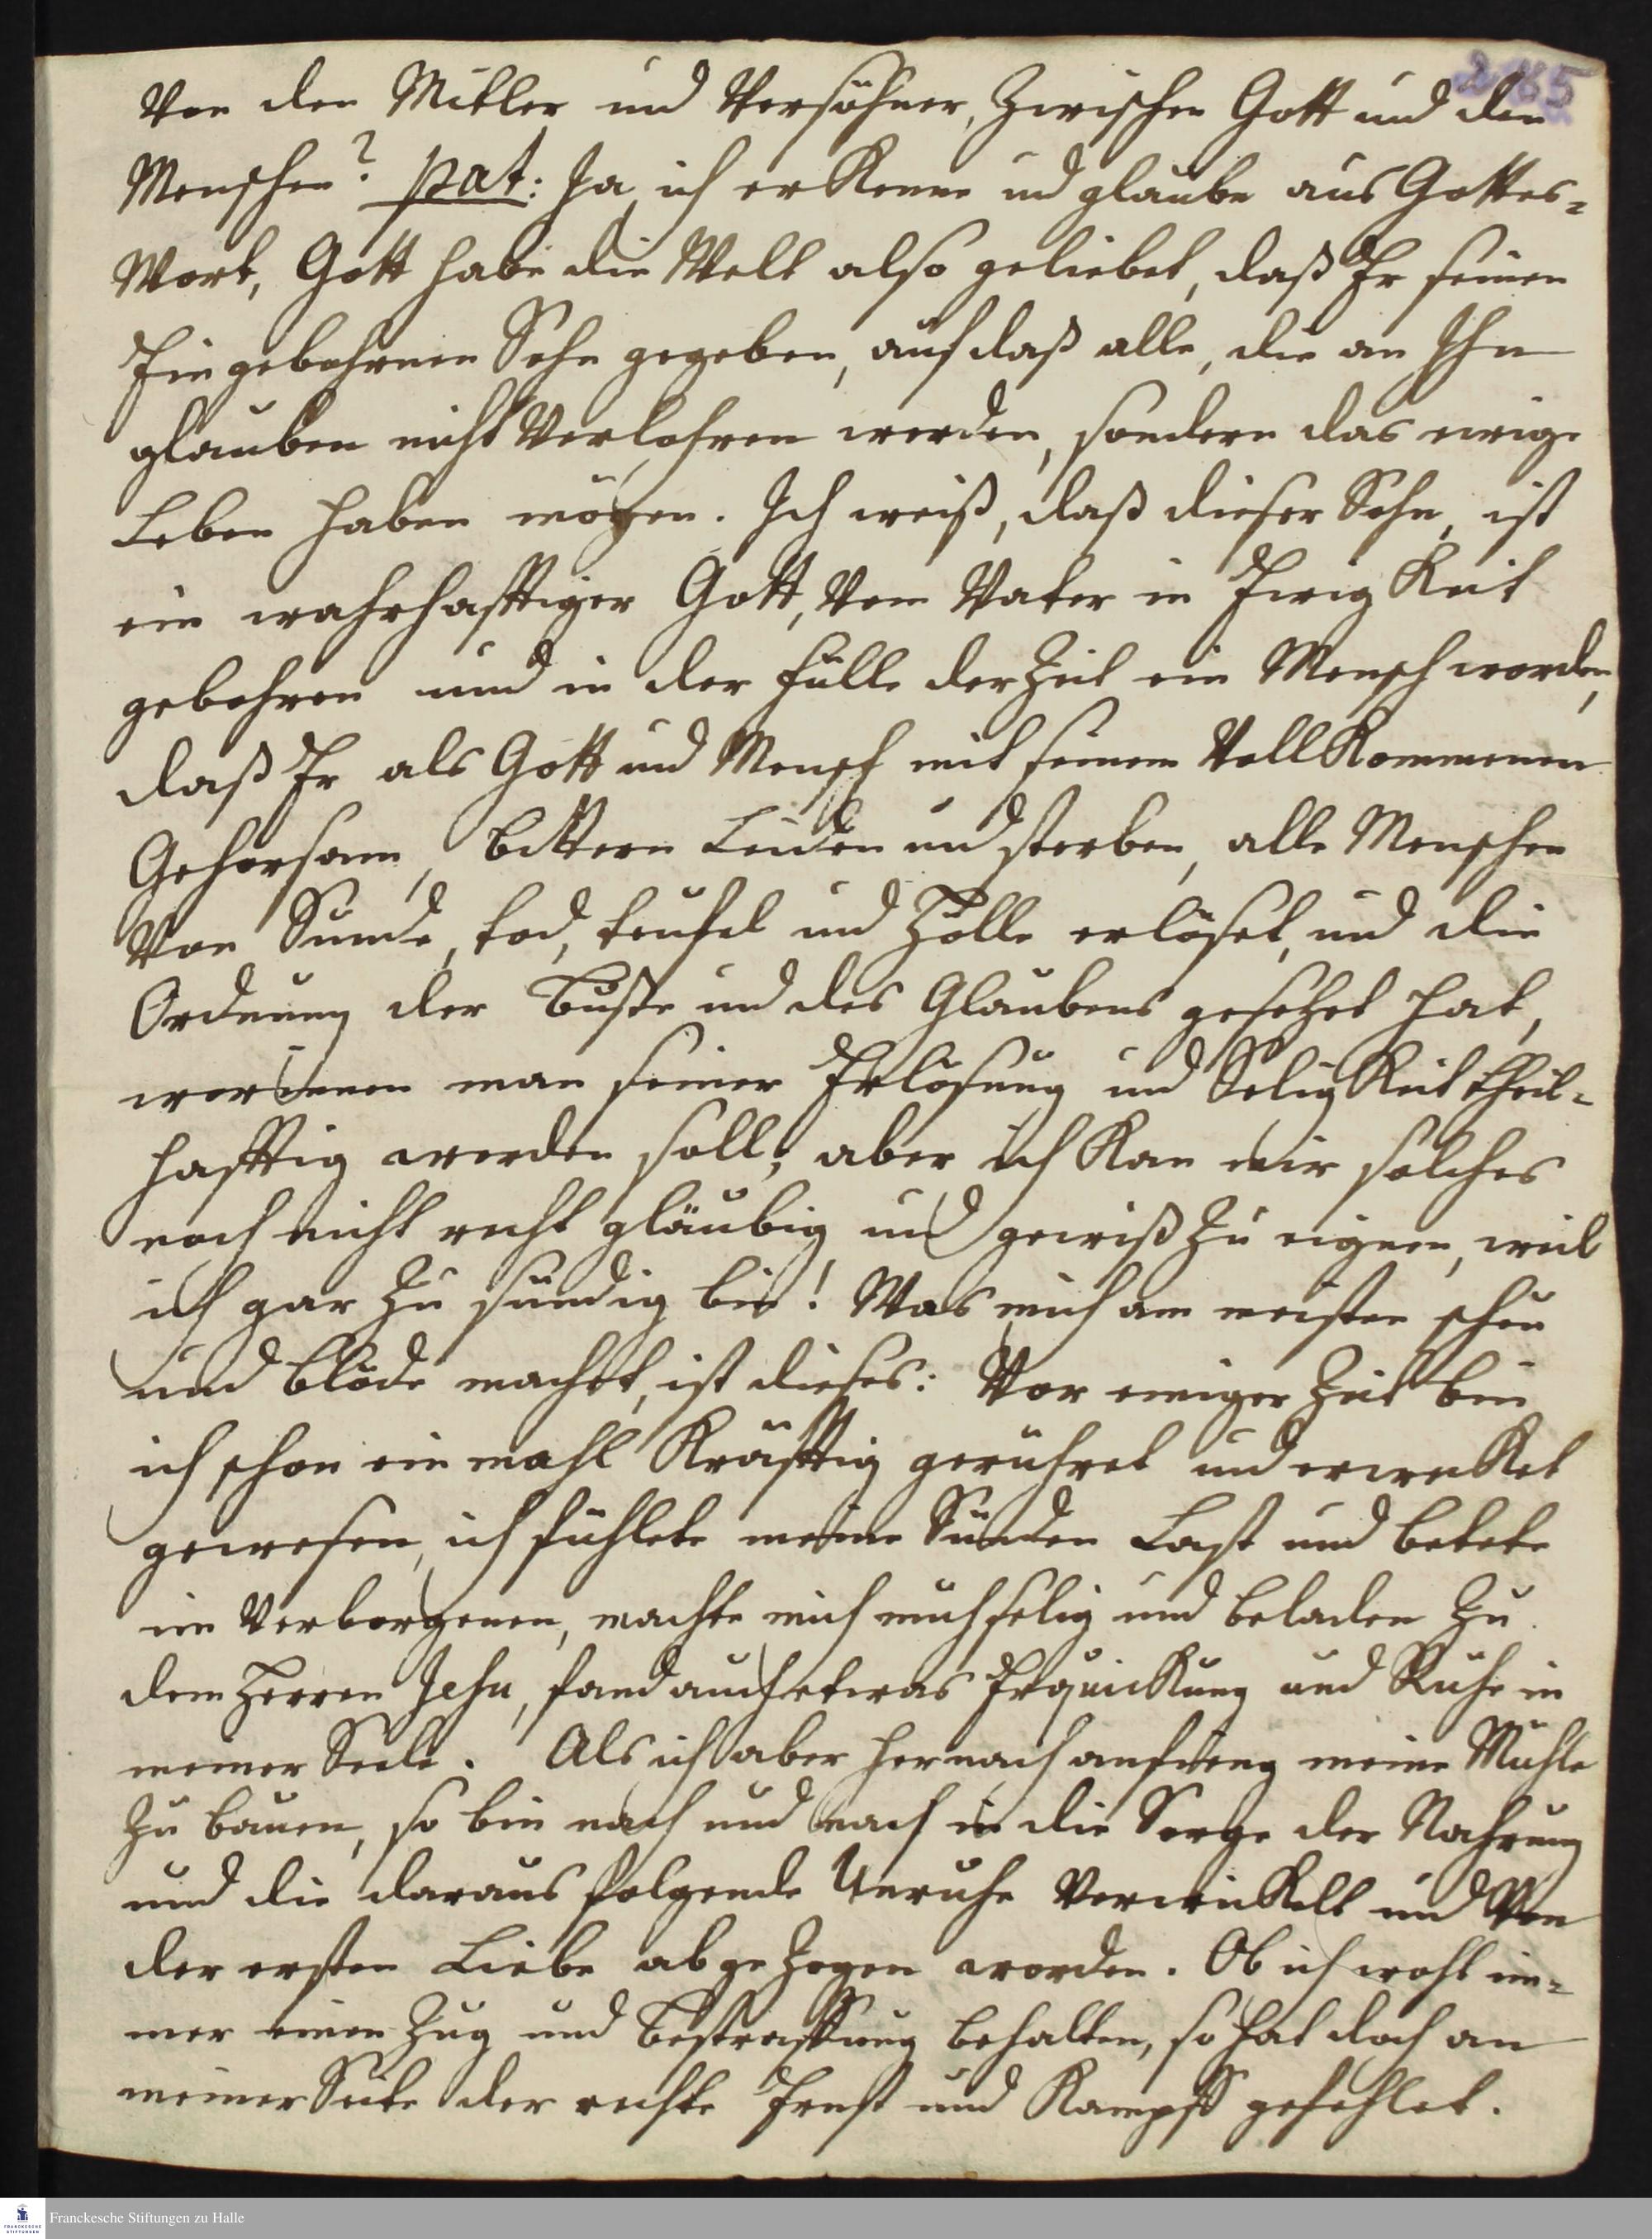 285
Von dem Mitler und Versöhner, Zwischen Gott und den
Menschen? pat: Ja, ich erKenne und glaube aus Gottes-
Wort, Gott habe die Welt also geliebet, daß Er seinen
Eingebohrnen Sohn gegeben, auf daß alle, die an Ihn
glauben nicht Verlohren werden, sondern das ewige
Leben haben mögen. Ich weiß, daß dieser Sohn, ist
ein wahrhafftiger Gott, Vom Vater in EwigKeit
gebohren und in der Fülle der Zeit ein Mensch worden,
daß Er als Gott und Mensch mit seinem VollKommenen
Gehorsam, bittern Leiden und sterben, alle Menschen
Von Sünde, tod, teufel und Hölle erlöset, und die
Ordnung der Buße und des Glaubens gesetzet hat,
worinnen man seiner Erlösung und SeligKeit theil-
hafftig werden soll; aber ich Kan mir solches
noch nicht recht gläubig und gewiß Zu eignen, weil
ich gar Zu sündig bin! Was mich am meisten scheu
und blöde machet, ist dieses: Vor einiger Zeit bin
ich schon ein mahl Kräfftig gerühret und erwecKet
gewesen, ich fühlete meine Sünden Last und betete
im Verborgenen, machte mich mühselig und beladen Zu
dem Herren Jesu, fand auch etwas ErquicKung und Ruhe in
meiner Seele. Als ich aber hernach anfieng meine Mühle
Zu bauen, so bin nach und nach in die Sorge der Nahrung
und die daraus folgende Unruhe VerwicKelt und Von
der ersten Liebe abgeZogen worden. Ob ich wohl im-
mer einen Zug und Bestraffung behalten, so hat doch an
meiner Seite der rechte Ernst und Kampff gefehlet.
Franckesche Stiftungen zu Halle
FRANCKESCHE
STIFTUNGEN